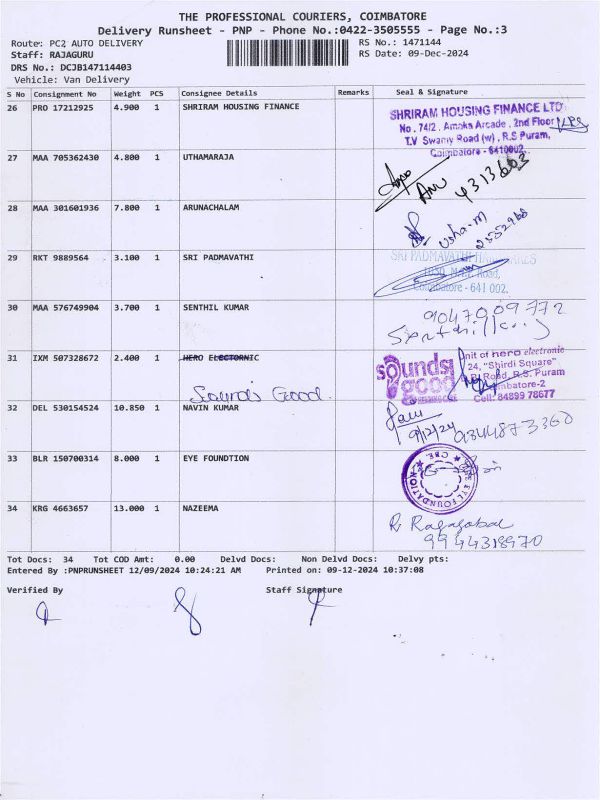 THE PROFESSIONAL COURIERS, COIMBATORE
Delivery Runsheet - PNP - Phone No.:0422-3505555 - Page No.:3
Route: PC2 AUTO DELIVERY RS No.: 1471144
Staff: RAJAGURU RS Date: 09-Dec-2024
DRS No.: DCJB147114403
Vehicle: Van Delivery
S No Consignment No Weight PCS Consignee Details Remarks Seal & Signature
26 PRO 17212925 4.900 1 SHRIRAM HOUSING FINANCE
SHRIRAM HOUSING FINANCE LTD
No. 74/2, Amoka Arcade, 2nd Floor
T.V Swamy Road (w), R.S Puram,
Coimbatore - 641002.
27 MAA 705362430 4.800 1 UTHAMARAJA
Anu 4313603
28 MAA 301601936 7.800 1 ARUNACHALAM
Usha-M
2552968
29 RKT 9889564 3.100 1 SRI PADMAVATHI
SRI PADMAVATHI
Road,
Coimbatore - 641 002.
30 MAA 576749904 3.700 1 SENTHIL KUMAR
9047009772
31 IXM 507328672 2.400 1 HERO ELECTORNIC
Sounds Good
sounds good
Unit of hero electronic
24, "Shirdi Square"
Road, R.S. Puram
Coimbatore-2
Cell: 84899 78677
32 DEL 530154524 10.850 1 NAVIN KUMAR
9/12/24 9344873360
33 BLR 150700314 8.000 1 EYE FOUNDTION
THE EYE FOUNDATION
CBE.
34 KRG 4663657 13.000 1 NAZEEMA
R. Ragagobal
9944318970
Tot Docs: 34 Tot COD Amt: 0.00 Delvd Docs: Non Delvd Docs: Delvy pts:
Entered By :PNPRUNSHEET 12/09/2024 10:24:21 AM Printed on: 09-12-2024 10:37:08
Verified By Staff Signature